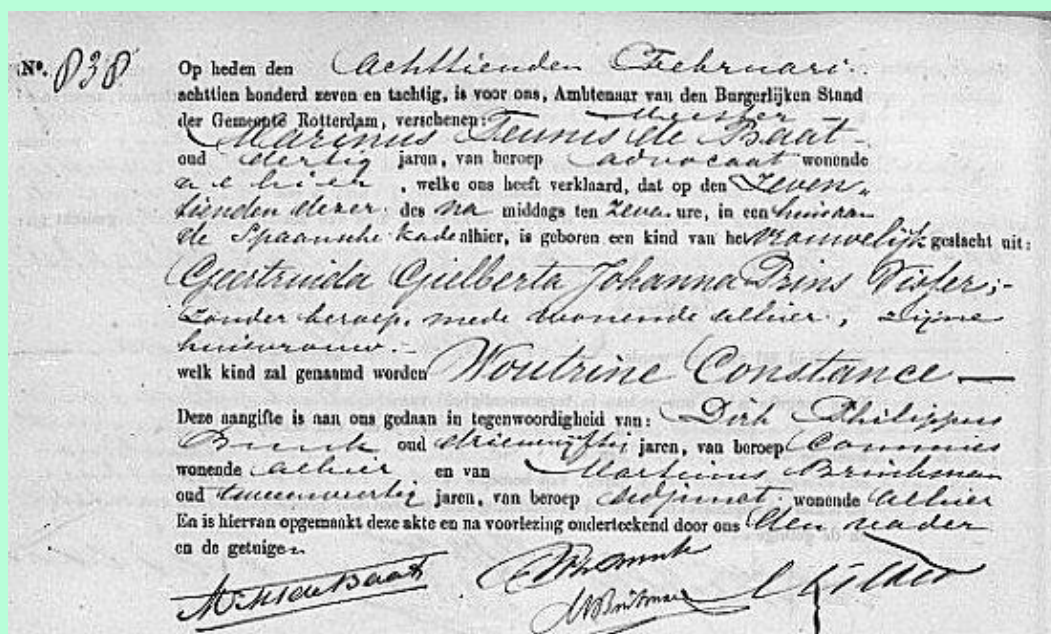 No. 838 Op heden den Achttienden Februari
achttien honderd zeven en tachtig, is voor ons, Ambtenaar van den Burgerlijken Stand
der Gemeente Rotterdam, verschenen: Meester
Marinus Teunis de Baat
oud dertig jaren, van beroep advocaat wonende
alhier, welke ons heeft verklaard, dat op den Zeven-
tienden dezer des na middags ten zeven ure, in een huis aan
de Spaansche kade alhier, is geboren een kind van het vrouwelijk geslacht uit:
Geertruida Gielberta Johanna Prins Visser,
zonder beroep, mede wonende alhier, zijne
huisvrouw.-
welk kind zal genaamd worden Woutrine Constance —
Deze aangifte is aan ons gedaan in tegenwoordigheid van: Dirk Philippus
oud drieenvijftig jaren, van beroep Commies
wonende alhier en van Martinus Brinkman
oud tweeenveertig jaren, van beroep adjunct wonende alhier
En is hiervan opgemaakt deze akte en na voorlezing onderteekend door ons den vader
en de getuigen
MTdeBaat